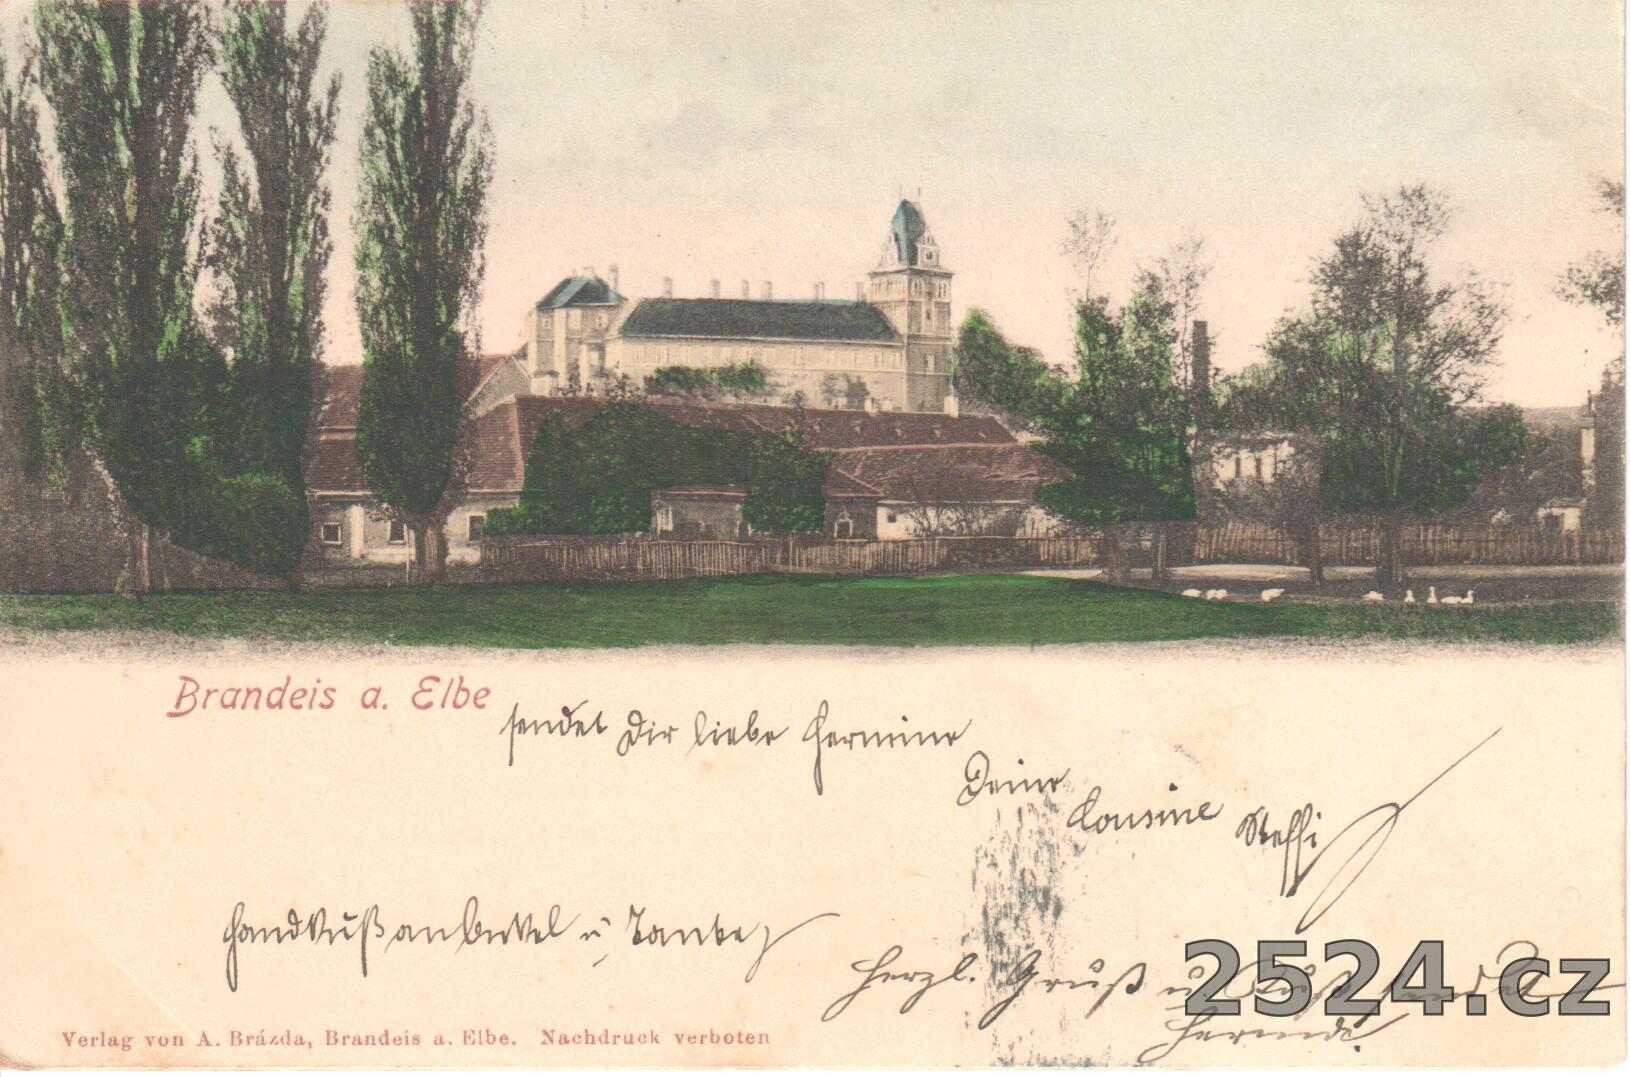 Brandeis a. Elbe
sendet Dir liebe Hermine
Deine
Cousine Steffi
Handkuß an Onkel u. Tante
Herzl. Gruß u. Kuß sendet
Verlag von A. Brázda, Brandeis a. Elbe. Nachdruck verboten
2524.cz